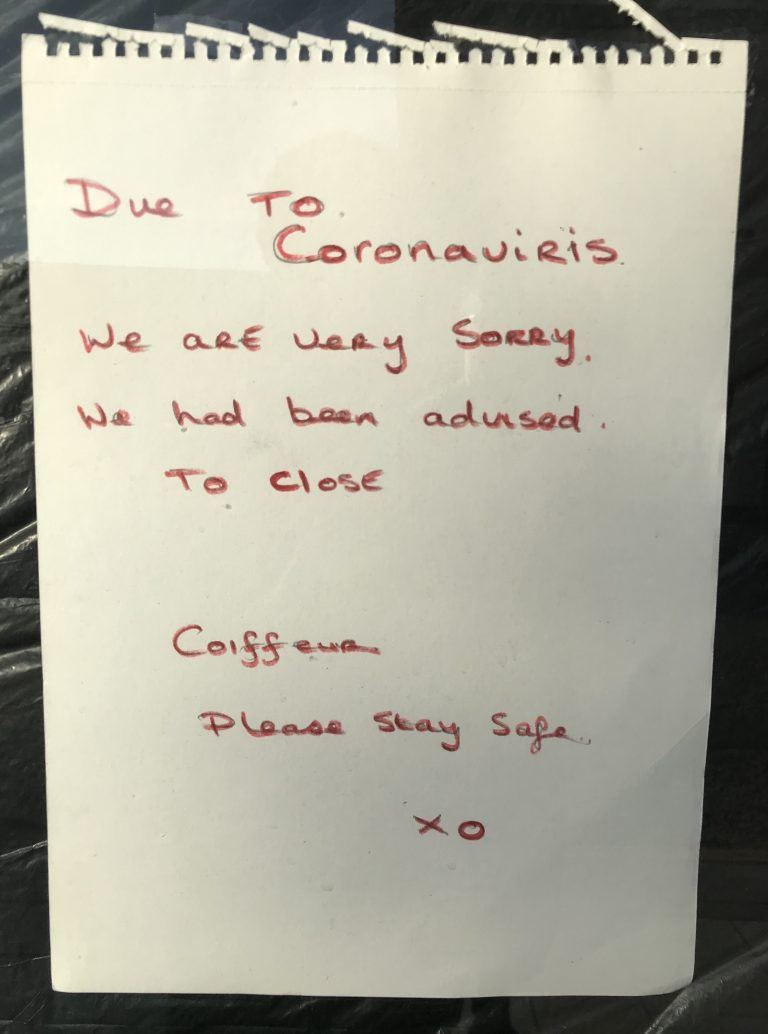 Due To
Coronaviris.
We are very Sorry.
We had been advised.
To Close
Coiffeur
Please stay safe.
xo